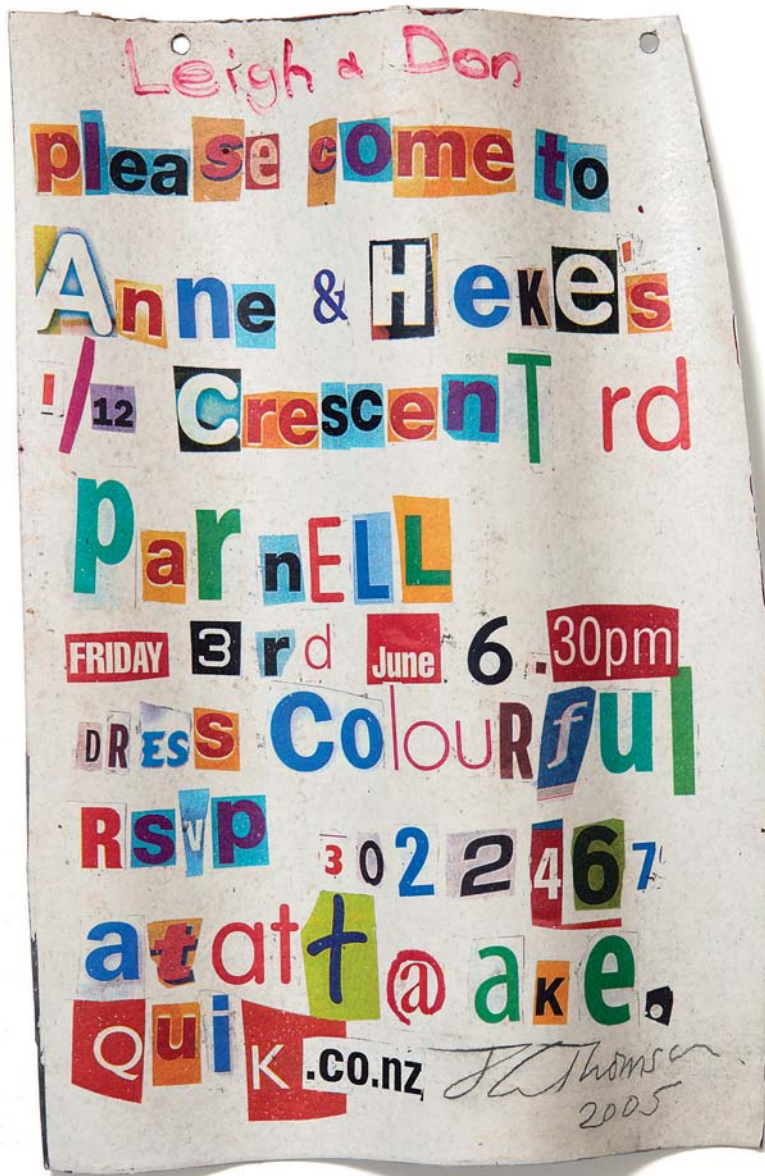 Leigh & Don
please come to
Anne & HeKe's
1/12 CrescenT rd
ParnELL
FRIDAY 3rd June 6.30pm
DRESS ColouRful
RSVP 3022467
atatt@aKe.
QuiK.co.nz
Thomson
2005